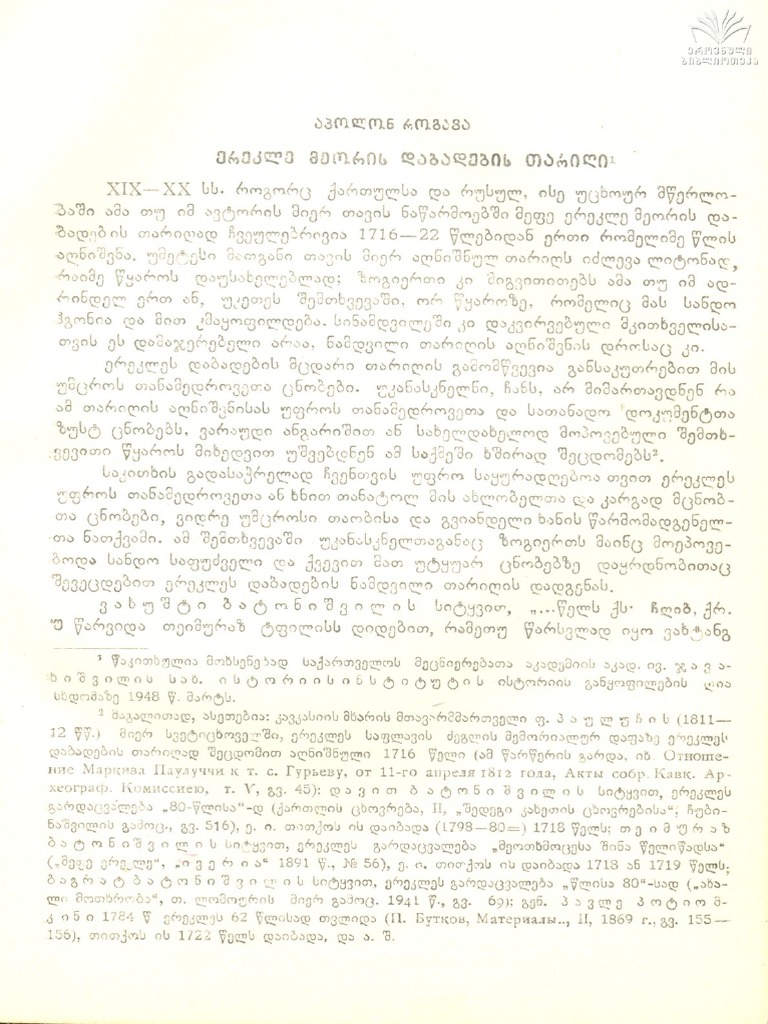 ეროვნული
ბიბლიოთეკა
აპოლონ როგავა
ერეკლე მეორის დაბადების თარიღი¹
XIX—XX სს. როგორც ქართულსა და რუსულ, ისე უცხოურ მწერლო-
ბაში ამა თუ იმ ავტორის მიერ თავის ნაწარმოებში მეფე ერეკლე მეორის და-
ბადების თარიღად ჩვეულებრივია 1716—22 წლებიდან ერთი რომელიმე წლის
აღნიშვნა. უმეტესი მათგანი თავის მიერ აღნიშნულ თარიღს იძლევა ლიტონად,
რაიმე წყაროს დაუსახელებლად; ზოგიერთი კი მიგვითითებს ამა თუ იმ ად-
რინდელ ერთ ან, უკეთეს შემთხვევაში, ორ წყაროზე, რომელიც მას სანდო
ჰგონია და მით კმაყოფილდება. სინამდვილეში კი დაკვირვებული მკითხველისა-
თვის ეს დამაჯერებელი არაა, ნამდვილი თარიღის აღნიშვნის დროსაც კი.
ერეკლეს დაბადების მცდარი თარიღის გამომწვევია განსაკუთრებით მის
უმცროს თანამედროვეთა ცნობები. უკანასკნელნი, ჩანს, არ მიმართავდნენ რა
ამ თარიღის აღნიშვნისას უფროს თანამედროვეთა და სათანადო დოკუმენტთა
ზუსტ ცნობებს, ვარაუდი ანგარიშით ან სახელდახელოდ მოპოვებული შემთხ-
ვევითი წყაროს მიხედვით უშვებდნენ ამ საქმეში ხშირად შეცდომებს².
საკითხის გადასაჭრელად ჩვენთვის უფრო საყურადღებოა თვით ერეკლეს
უფროს თანამედროვეთა ან ხნით თანატოლ მის ახლობელთა და კარგად მცნობ-
თა ცნობები, ვიდრე უმცროსი თაობისა და გვიანდელი ხანის წარმომადგენელ-
თა ნათქვამი. ამ შემთხვევაში უკანასკნელთაგანაც ზოგიერთს მაინც მოეპოვე-
ბოდა სანდო საფუძველი და ქვევით მათ უტყუარ ცნობებზე დაყრდნობითაც
შევეცდებით ერეკლეს დაბადების ნამდვილი თარიღის დადგენას.
ვახუშტი ბატონიშვილის სიტყვით, „...წელს ქს· ჩღიბ, ქრ.
უ წარვიდა თეიმურაზ ტფილისს დიდებით, რამეთუ წარსვლად იყო ვახტანგ
¹ წაკითხულია მოხსენებად საქართველოს მეცნიერებათა აკადემიის აკად. ივ. ჯავა-
ხიშვილის სახ. ისტორიის ინსტიტუტის ისტორიის განყოფილების ღია
სხდომაზე 1948 წ. მარტს.
² მაგალითად, ასეთებია: კავკასიის მხარის მთავარმმართველი ფ. პაულუჩის (1811—
12 წწ.) მიერ სვეტიცხოველში, ერეკლეს საფლავის ძეგლის მემორიალურ დაფაზე ერეკლეს
დაბადების თარიღად შეცდომით აღნიშნული 1716 წელი (ამ წარწერის გარდა, იხ. Отноше-
ние Маркиза Паулуччи к т. с. Гурьеву, от 11-го апреля 1812 года, Акты собр. Кавк. Ар-
хеограф. Комиссиею, т. V, გვ. 45); დავით ბატონიშვილის სიტყვით, ერეკლეს
გარდაცვალება „80-წლისა“-დ (ქართლის ცხოვრება, II, „შედეგი კახეთის ცხოვრებისა“; ჩუბი-
ნაშვილის გამოც., გვ. 516), ე. ი. თითქოს ის დაიბადა (1798—80=) 1718 წელს; თეიმურაზ
ბატონიშვილის სიტყვით, ერეკლეს გარდაცვალება „მეოთხმოცესა შინა წელიწადსა“
(„მეფე ერეკლე“, „ივერია“ 1891 წ., № 56), ე. ი. თითქოს ის დაიბადა 1718 ან 1719 წელს;
ბაგრატ ბატონიშვილის სიტყვით, ერეკლეს გარდაცვალება „წლისა 80“-სად („ახა-
ლი მოთხრობა“, თ. ლომოურის მიერ გამოც. 1941 წ., გვ. 69); გენ. პავლე პოტიომ-
კინი 1784 წ ერეკლეს 62 წლისად თვლიდა (П. Бутков, Материалы.., II, 1869 г., გვ. 155—
156), თითქოს ის 1722 წელს დაიბადა, და ა. შ.